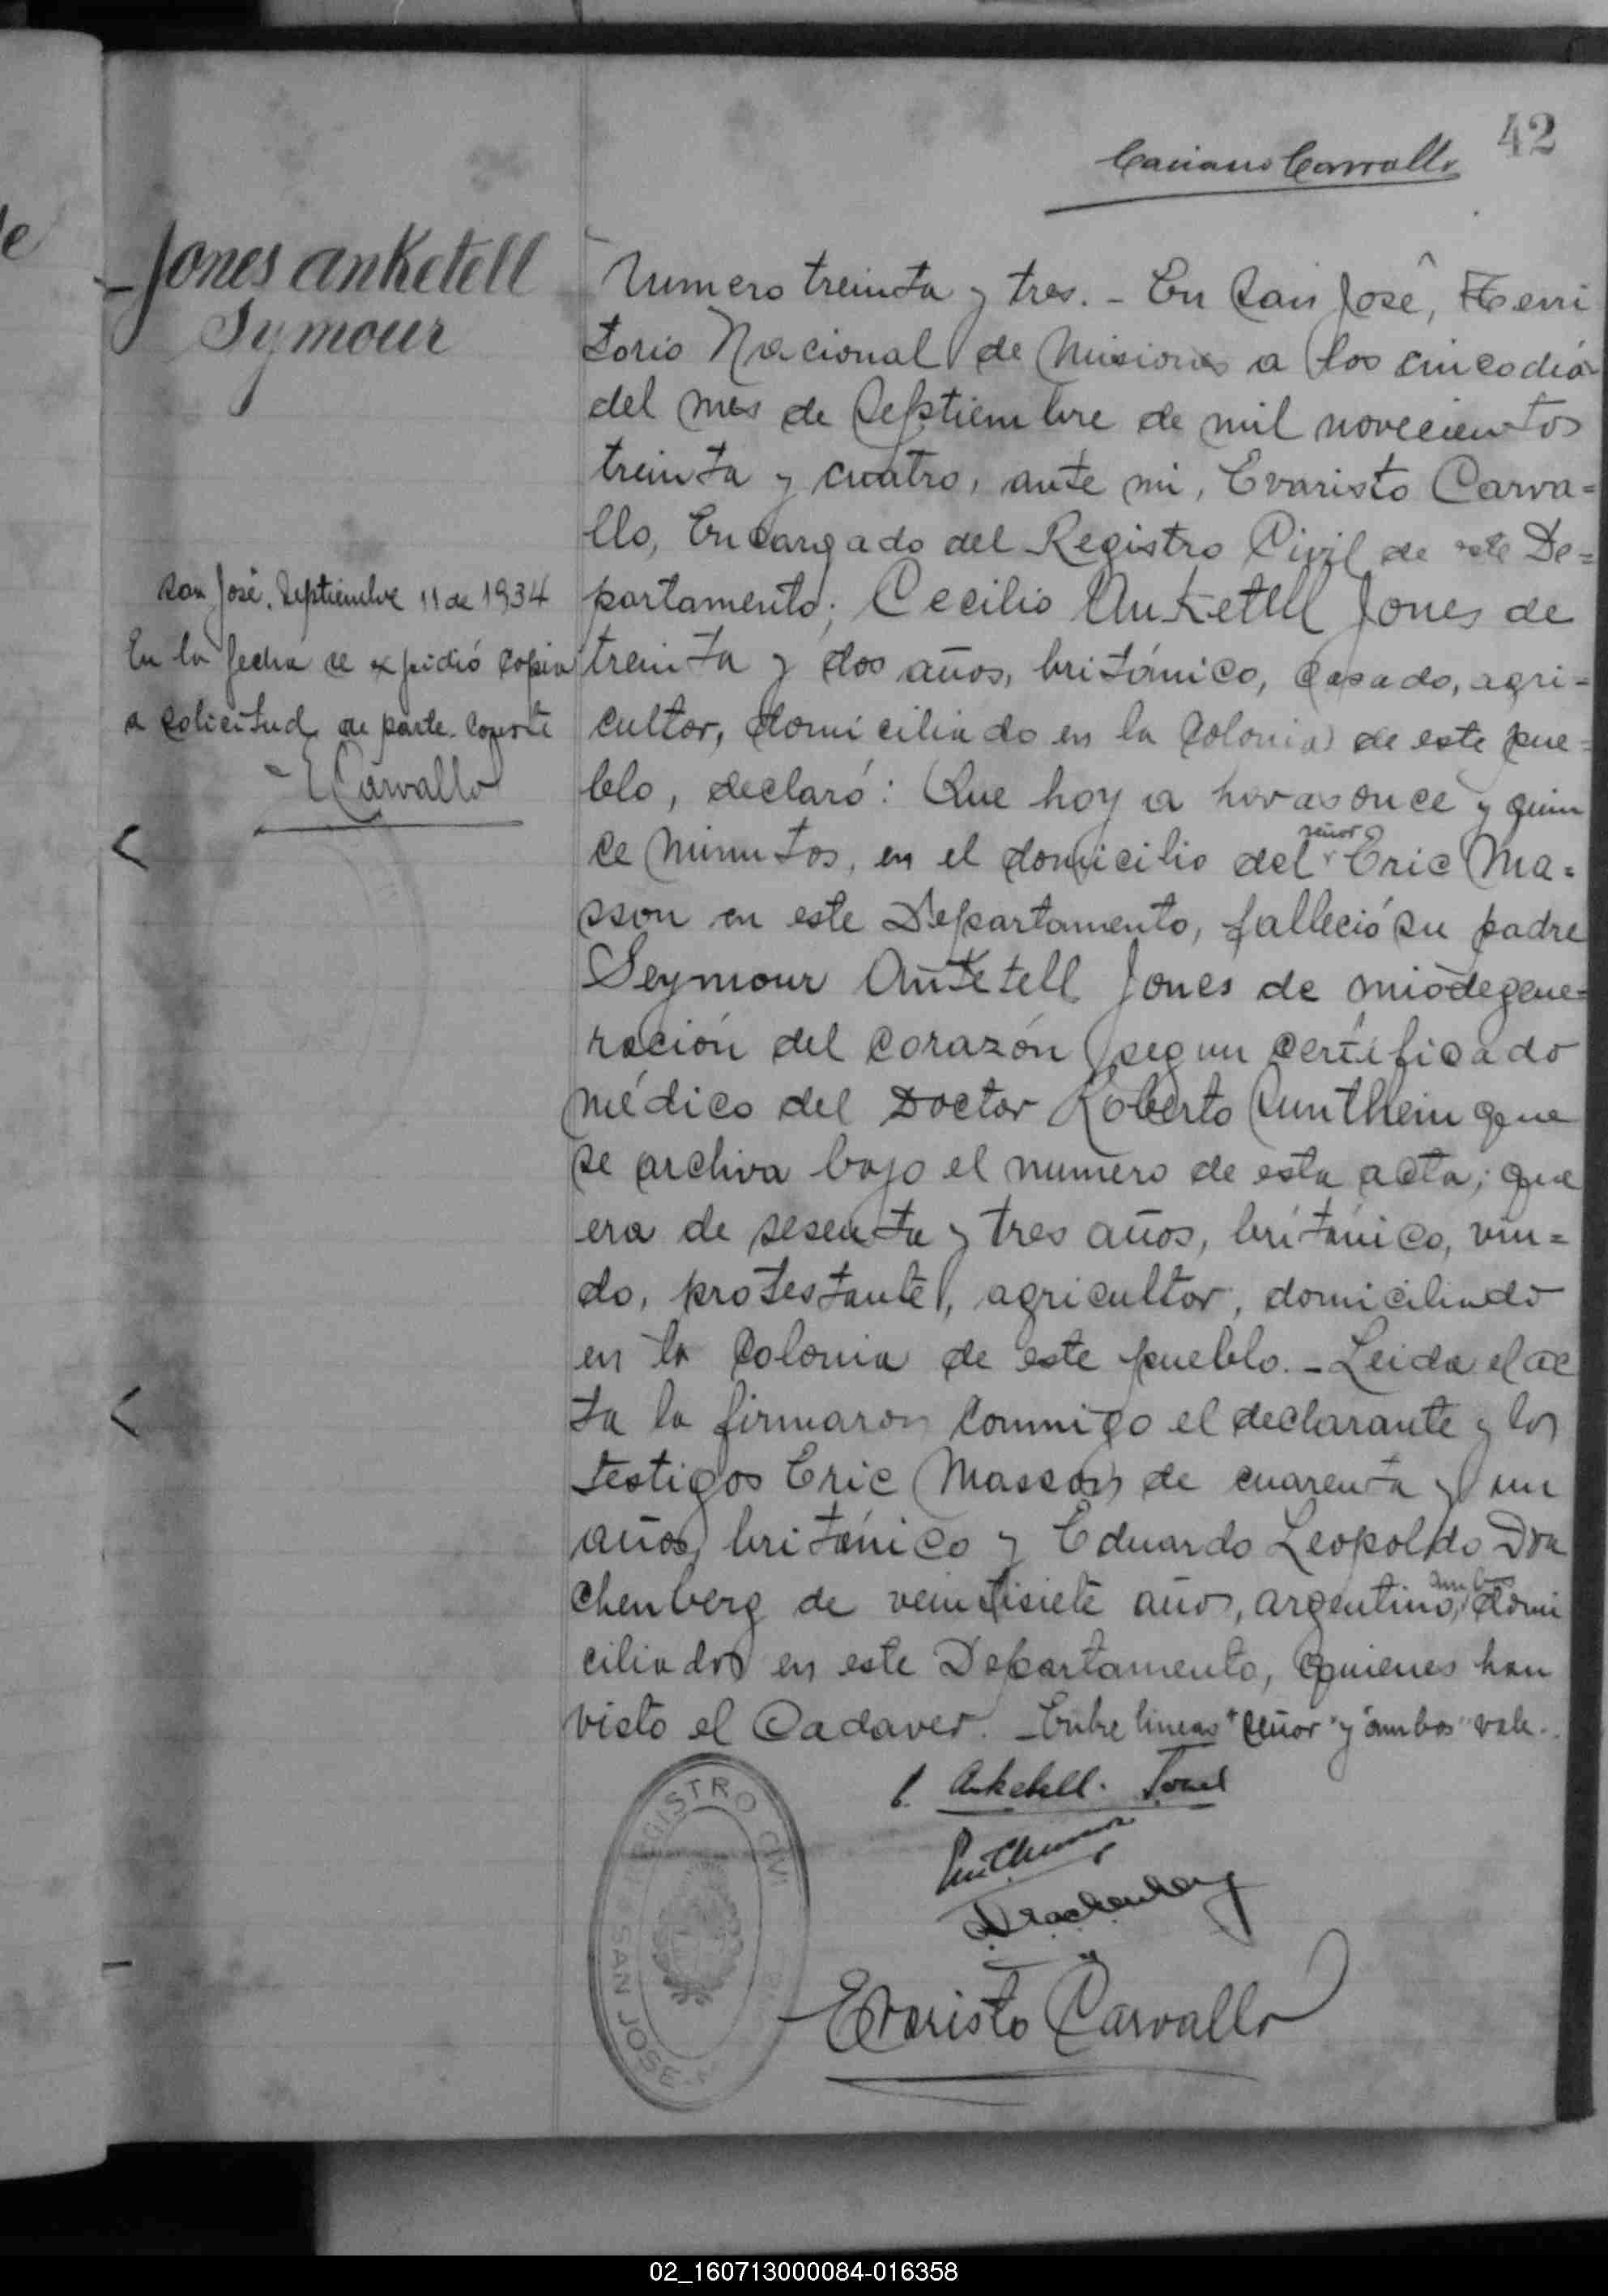 42
Carvallo
Jones Anketell
Symour
Numero treinta y tres. - En San José, Terri
torio Nacional de Misiones a los cinco días
del mes de Septiembre de mil novecientos
treinta y cuatro, ante mi, Evaristo Carva=
llo, Encargado del Registro Civil de este De=
partamento; Cecilio Anketell Jones de
treinta y dos años, británico, casado, agri=
cultor, domiciliado en la Colonia de este pue=
blo, declaró: Que hoy a horas once y quin
ce minutos, en el domicilio del señor Eric Ma=
sson en este Departamento, falleció su padre
Seymour Anketell Jones de miodegene=
ración del corazón segun certificado
médico del Doctor Roberto que
se archiva bajo el numero de esta acta; que
era de sesenta y tres años, británico, viu=
do, protestante, agricultor, domiciliado
en la Colonia de este pueblo. - Leida el ac
ta la firmaron conmigo el declarante y los
testigos Eric Masson de cuarenta y un
años, británico y Eduardo Leopoldo Dra
chenberg de veintisiete años, argentino, ambos domi
ciliados en este Departamento, quienes han
visto el cadaver. - Entre lineas "señor" y "ambos" vale.
San José, Septiembre 11 de 1934
En la fecha se expidió copia
a solicitud de parte. Conste
E Carvallo
C. Anketell. Jones
Drachenberg
Evaristo Carvallo
REGISTRO CIVIL
SAN JOSE
02_160713000084-016358